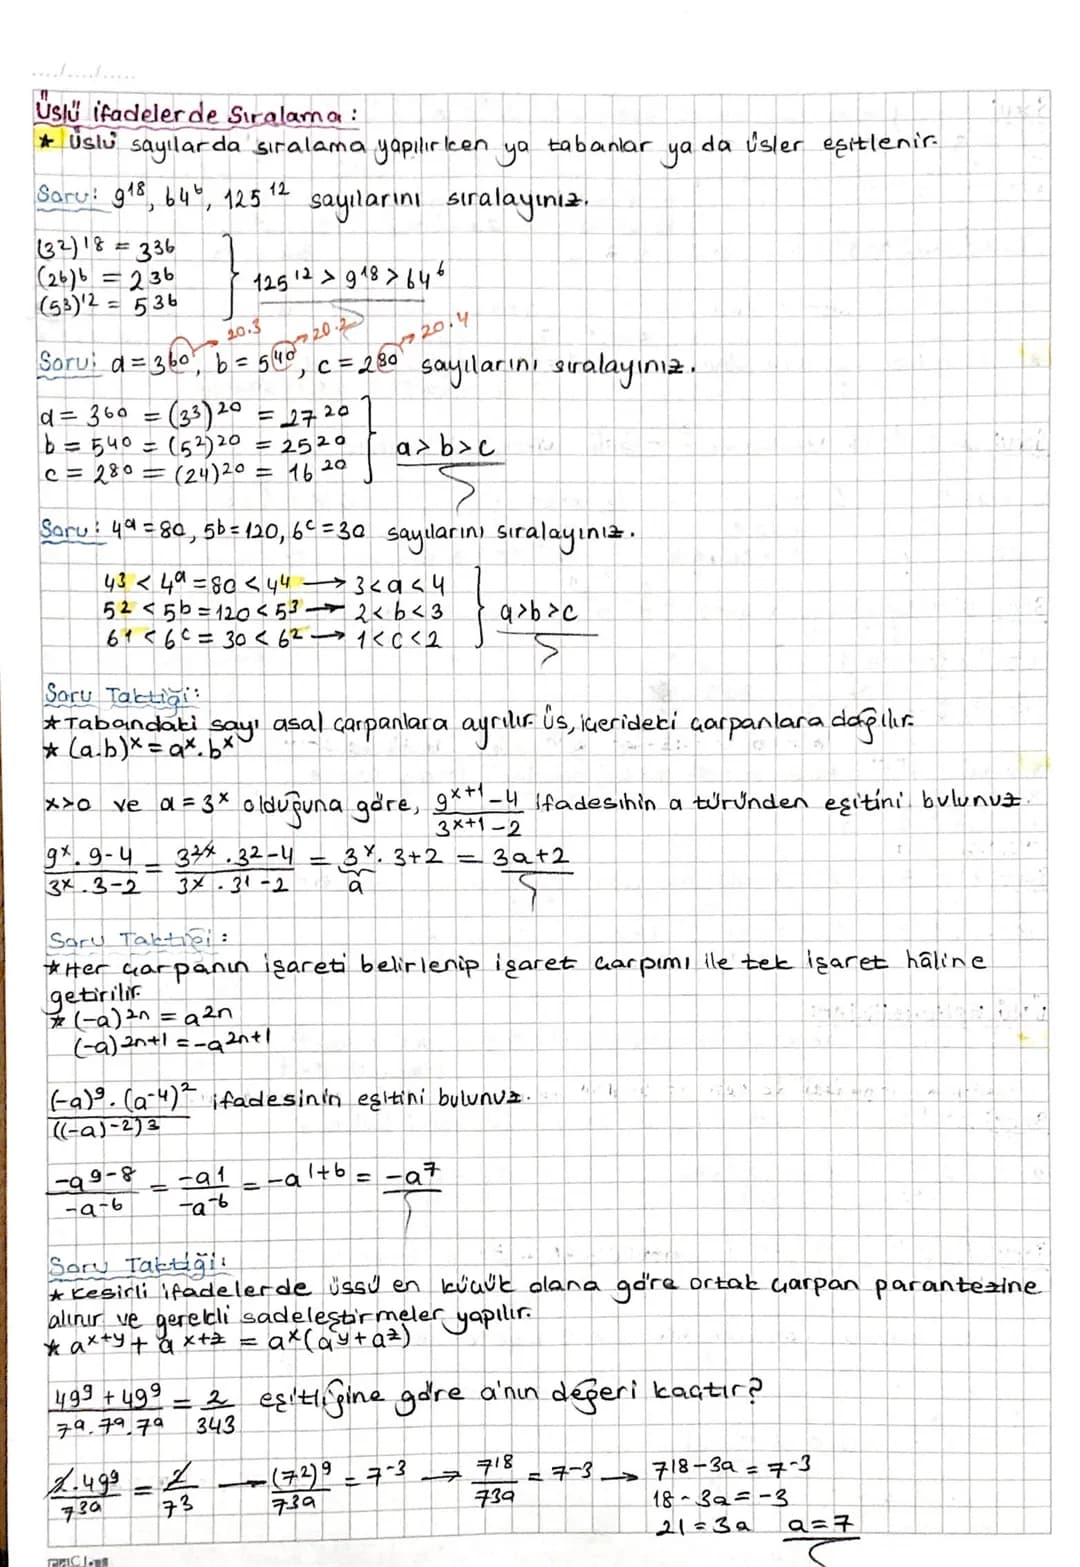 Üslü ifadelerde Sıralama:
★ Üslü sayılarda sıralama yapılırken ya tabanlar ya da üsler eşitlenir.
Soru: 9¹⁸, 64⁶, 125¹² sayılarını sıralayınız.
(3²)¹⁸ = 3³⁶
(2⁶)⁶ = 2³⁶
(5³)¹² = 5³⁶
125¹² > 9¹⁸ > 64⁶
20.3 20.2 20.4
Soru: a = 3⁶⁰, b = 5⁴⁰, c = 2⁸⁰ sayılarını sıralayınız.
a = 3⁶⁰ = (3³)²⁰ = 27²⁰
b = 5⁴⁰ = (5²)²⁰ = 25²⁰
c = 2⁸⁰ = (2⁴)²⁰ = 16²⁰
a > b > c
Soru: 4ᵃ = 80, 5ᵇ = 120, 6ᶜ = 30 sayılarını sıralayınız.
4³ < 4ᵃ = 80 < 4⁴ → 3 < a < 4
5² < 5ᵇ = 120 < 5³ → 2 < b < 3
6¹ < 6ᶜ = 30 < 6² → 1 < c < 2
a > b > c
Soru Taktiği:
★ Tabandaki sayı asal çarpanlara ayrılır. Üs, içerideki çarpanlara dağılır.
★ (a.b)ˣ = aˣ.bˣ
x>0 ve a = 3ˣ olduğuna göre, (9ˣ⁺¹ - 4)/(3ˣ⁺¹ - 2) ifadesinin a türünden eşitini bulunuz.
(9ˣ.9 - 4)/(3ˣ.3 - 2) = (3²ˣ.3² - 4)/(3ˣ.3¹ - 2) = 3ˣ.3 + 2 = 3a + 2
a
Soru Taktiği:
★ Her çarpanın işareti belirlenip işaret çarpımı ile tek işaret hâline
getirilir.
★ (-a)²ⁿ = a²ⁿ
(-a)²ⁿ⁺¹ = -a²ⁿ⁺¹
(-a)⁹.(a⁻⁴)² / ((-a)⁻²)³ ifadesinin eşitini bulunuz.
-a⁹⁻⁸/-a⁻⁶ = -a¹/-a⁻⁶ = -a¹⁺⁶ = -a⁷
Soru Taktiği:
★ Kesirli ifadelerde üssü en küçük olana göre ortak çarpan parantezine
alınır ve gerekli sadeleştirmeler yapılır.
★ aˣ⁺ʸ + aˣ⁺ᶻ = aˣ(aʸ + aᶻ)
(49⁹ + 49⁹)/(7ᵃ.7ᵃ.7ᵃ) = 2/343 eşitliğine göre a'nın değeri kaçtır?
2.49⁹/7³ᵃ = 2/7³ → (7²)⁹/7³ᵃ = 7⁻³ → 7¹⁸/7³ᵃ = 7⁻³ → 7¹⁸⁻³ᵃ = 7⁻³
18 - 3a = -3
21 = 3a a = 7